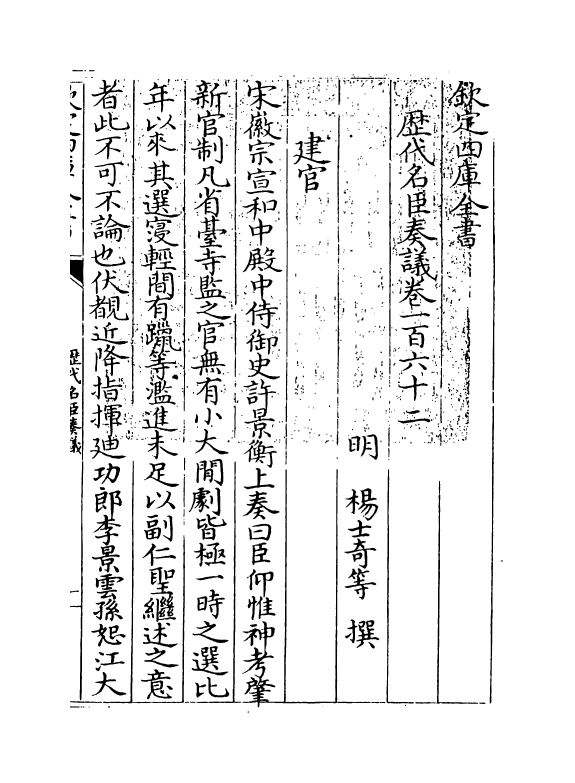 欽定四庫全書
歴代名臣奏議卷一百六十二
明 楊士奇等 撰
建官
宋徽宗宣和中殿中侍御史許景衡上奏曰臣仰惟神考肇
新官制凡省臺寺監之官無有小大閒劇皆極一時之選比
年以來其選寖輕間有躐等濫進未足以副仁聖繼述之意
者此不可不論也伏覩近降指揮廸功郎李景雲孫恕江大
歴代名臣奏議